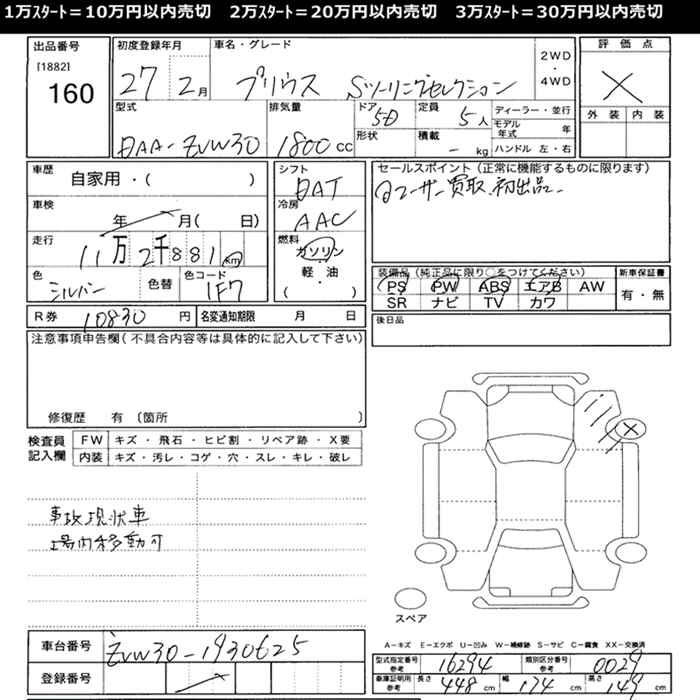 1万スタート＝10万円以内売切　2万スタート＝20万円以内売切　3万スタート＝30万円以内売切
出品番号
[1882]
160
初度登録年月
27 2月
車名・グレード
プリウス Sツーリングセレクション
2WD
・
4WD
評価点
×
外装 内装
型式
DAA-ZVW30
排気量
1800cc
ドア
5D
形状
定員
5人
積載
- kg
ディーラー・並行
モデル年式 年
ハンドル 左・右
車歴
自家用・( )
車検
年 月( 日)
走行
11万2千881km
色
シルバー
色替
色コード
1F7
シフト
DAT
冷房
AAC
燃料
ガソリン
・
軽油
・
( )
セールスポイント(正常に機能するものに限ります)
ユーザー買取 初出品
装備品(純正品に限り○をつけてください)
PS PW ABS エアB AW
SR ナビ TV カワ
新車保証書
有・無
後日品
R券 10830円
名変通知期限 月 日
注意事項申告欄(不具合内容等は具体的に記入して下さい)
修復歴 有 〔箇所 〕
検査員記入欄
FW キズ・飛石・ヒビ割・リペア跡・X要
内装 キズ・汚レ・コゲ・穴・スレ・キレ・破レ
事故現状車
場内移動可
スペア
A－キズ E－エクボ U－凹み W－補修跡 S－サビ C－腐食 XX－交換済
車台番号 ZVW30-1930625
登録番号
型式指定番号 参考 16294
類別区分番号 参考 0029
車庫証明用 参考
長さ 448cm
幅 174cm
高さ 149cm